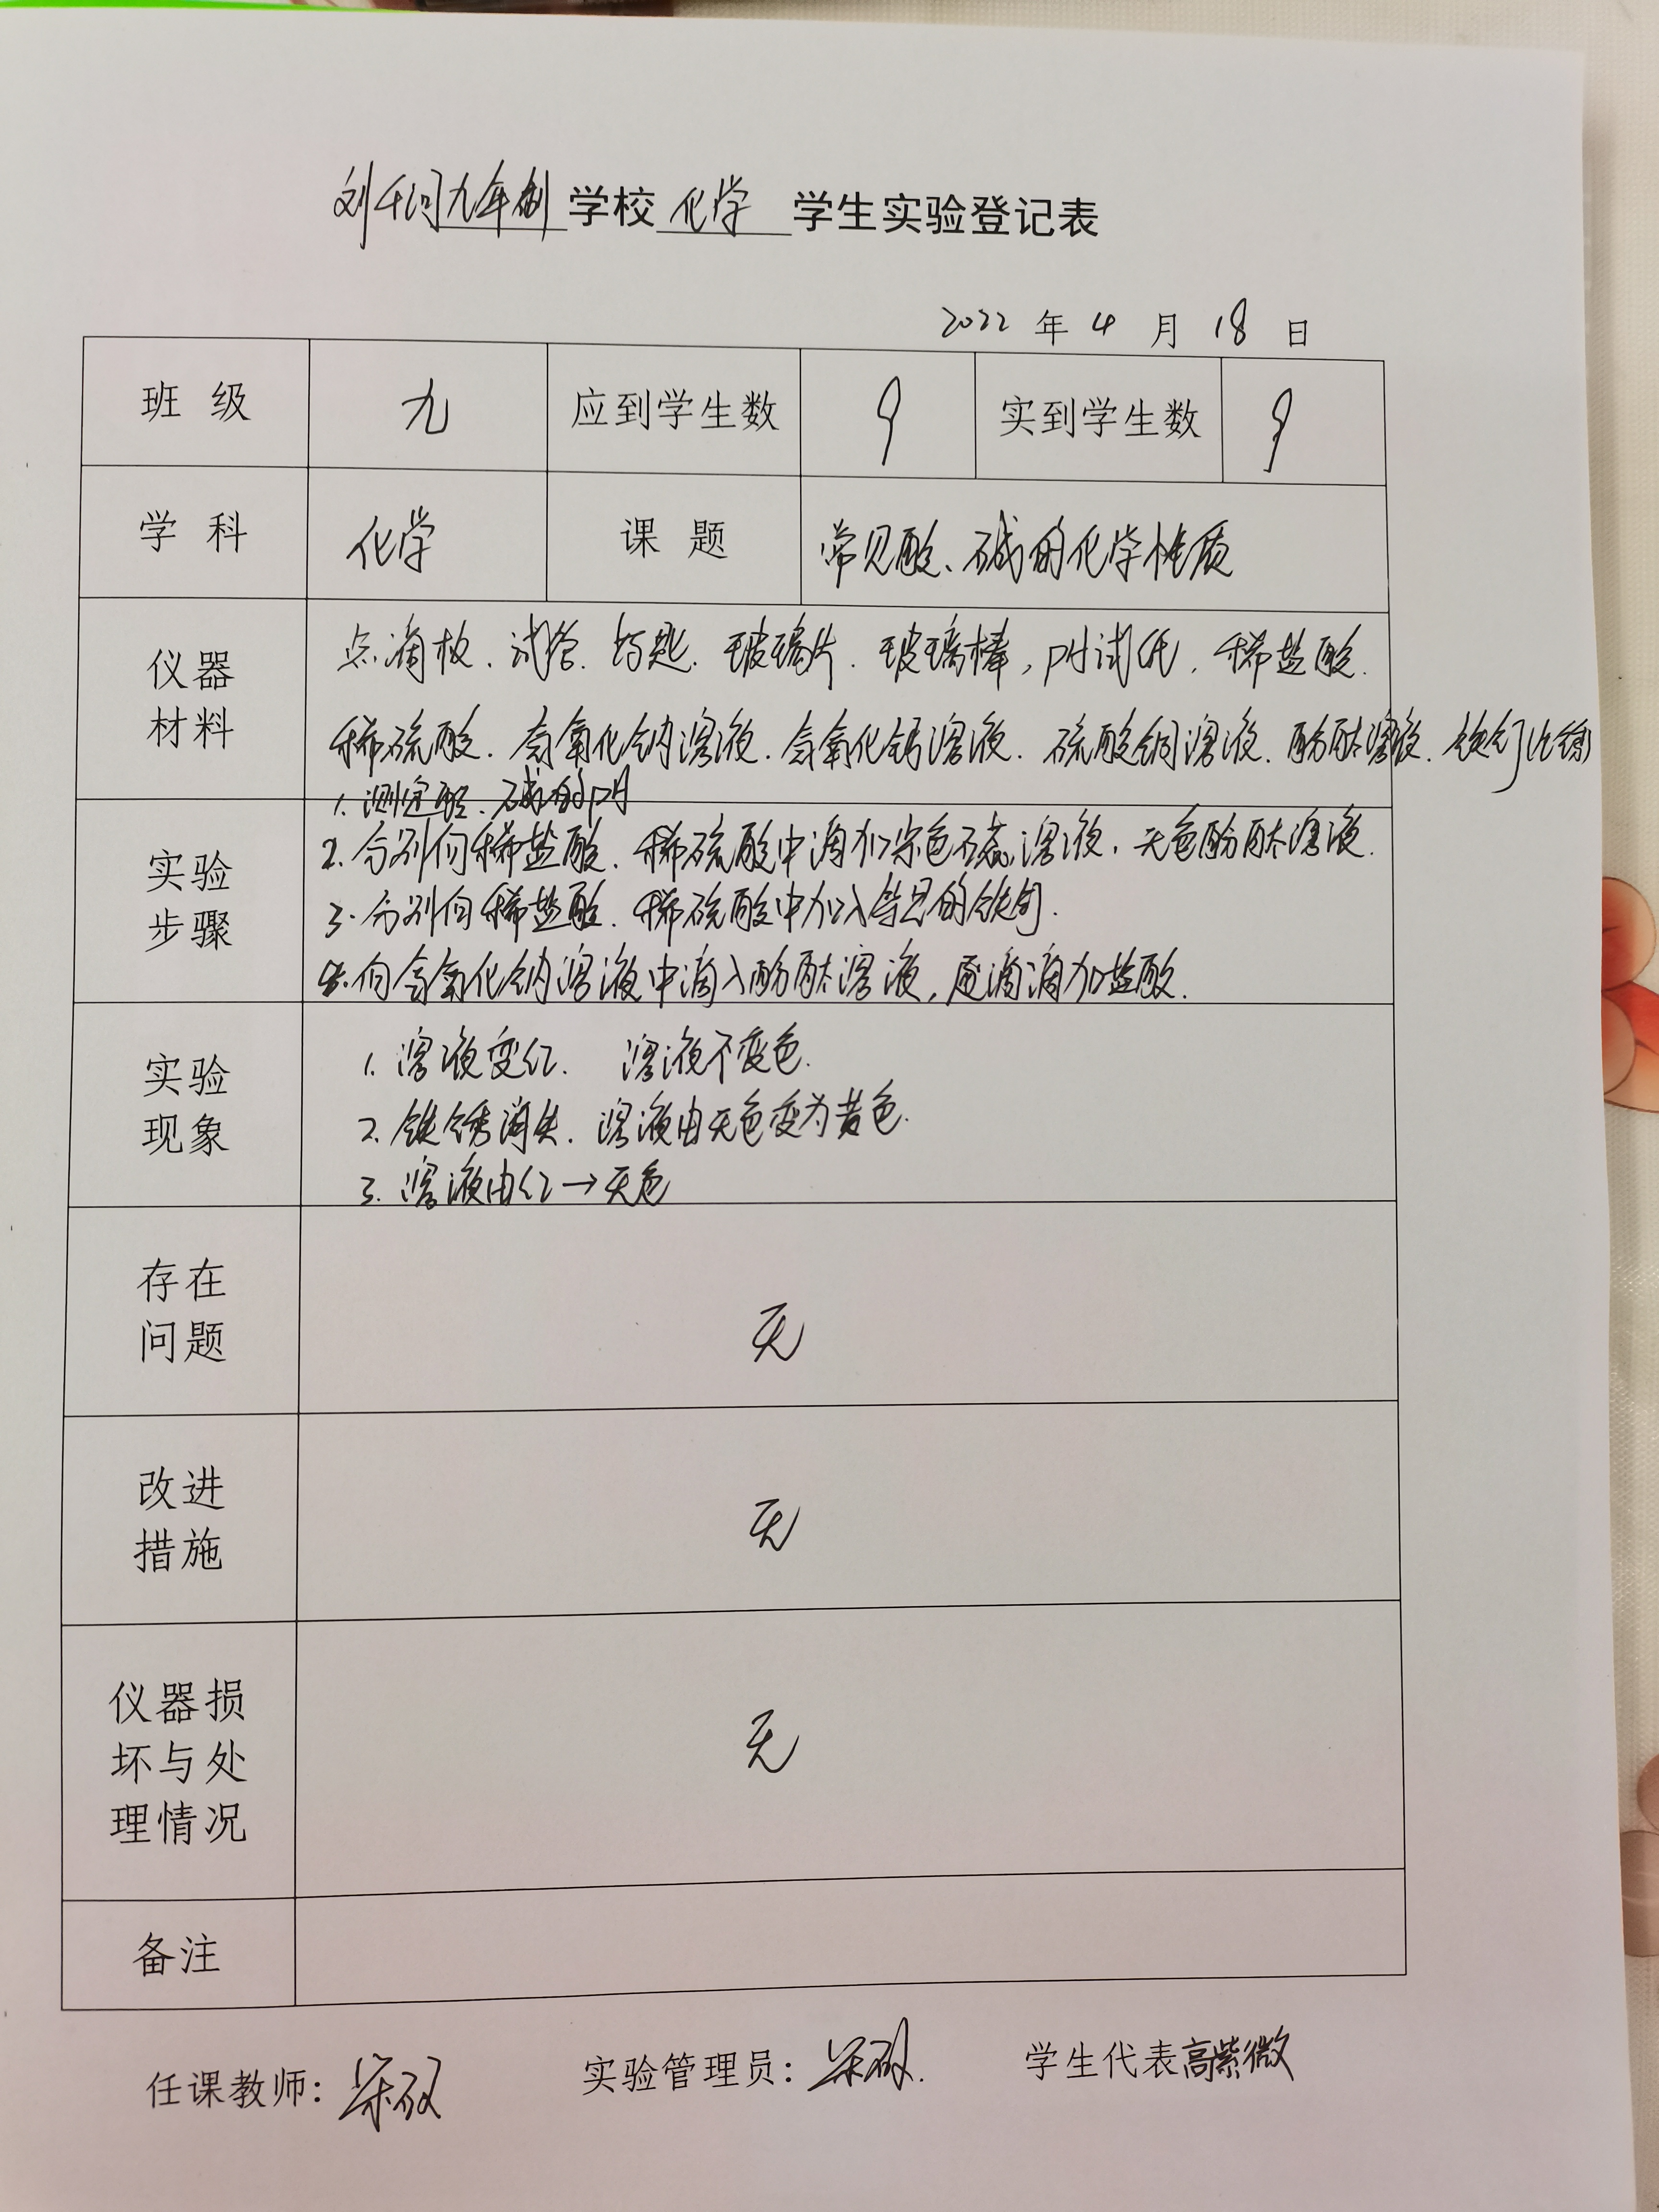 刘千同九年制学校 化学 学生实验登记表
2022 年 4 月 18 日
班级 九 应到学生数 9 实到学生数 9
学科 化学 课题 常见酸、碱的化学性质
仪器材料
点滴板、试管、药匙、玻璃片、玻璃棒,pH试纸,稀盐酸、
稀硫酸、氢氧化钠溶液、氢氧化钙溶液、硫酸铜溶液、酚酞溶液、铁钉(生锈)
实验步骤
1. 测定酸、碱的pH
2. 分别向稀盐酸、稀硫酸中滴加紫色石蕊溶液,无色酚酞溶液.
3. 分别向稀盐酸、稀硫酸中加入生锈的铁钉.
4. 向氢氧化钠溶液中滴入酚酞溶液,逐滴滴加盐酸.
实验现象
1. 溶液变红. 溶液不变色.
2. 铁锈消失. 溶液由无色变为黄色.
3. 溶液由红→无色
存在问题 无
改进措施 无
仪器损坏与处理情况 无
备注
任课教师: 实验管理员: 学生代表 高紫微